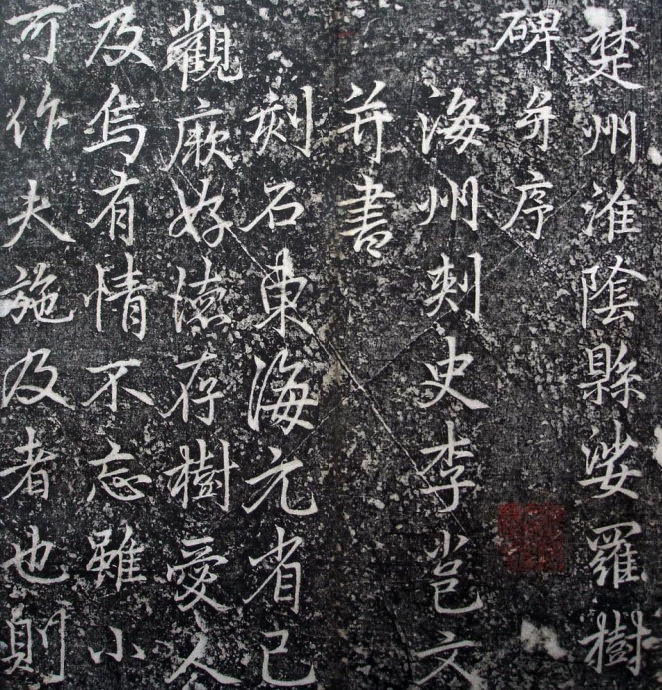 楚州淮陰縣娑羅樹
碑并序
海州刺史李邕文
并書
刻石東海元省己
觀厥好德存樹愛人
及烏有情不忘雖小
可作夫施及者也則